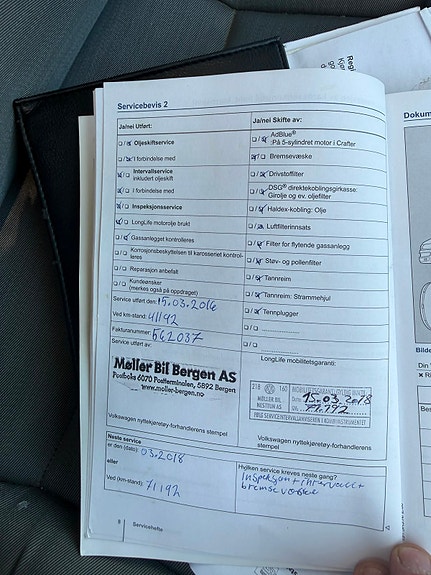 Servicebevis 2
Ja/nei Utført:
Oljeskiftservice
I forbindelse med
Intervallservice
inkludert oljeskift
I forbindelse med
Inspeksjonsservice
LongLife motorolje brukt
Gassanlegget kontrolleres
Korrosjonsbeskyttelsen til karosseriet kontrol-
leres
Reparasjon anbefalt
Kundeønsker
(merkes også på oppdraget)
Service utført den: 15.03.2016
Ved km-stand: 41192
Fakturanummer: 562037
Service utført av:
Møller Bil Bergen AS
Postboks 6070 Postterminalen, 5892 Bergen
www.moller-bergen.no
Volkswagen nyttekjøretøy-forhandlerens stempel
Ja/nei Skifte av:
AdBlue®
:På 5-sylindret motor i Crafter
Bremsevæske
Drivstoffilter
DSG® direktekoblingsgirkasse:
Girolje og ev. oljefilter
Haldex-kobling: Olje
Luftfilterinnsats
Filter for flytende gassanlegg
Støv- og pollenfilter
Tannreim
Tannreim: Strammehjul
Tennplugger
LongLife mobilitetsgaranti:
218 160
MØLLER BIL
15.03.2018
71.192
FØLG SERVICEINTERVALLANVISEREN I KOMBIINSTRUMENTET
Volkswagen nyttekjøretøy-forhandlerens
stempel
Neste service
er den (dato): 03.2018
eller
Ved (km-stand): 71192
Hvilken service kreves neste gang?
Inspeksjon + intervall +
bremsevæske
8 Servicehefte
Dokum
Bilde
Din